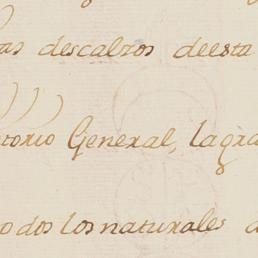 as descalzos deesta
torio General, la gra
odos los naturales d